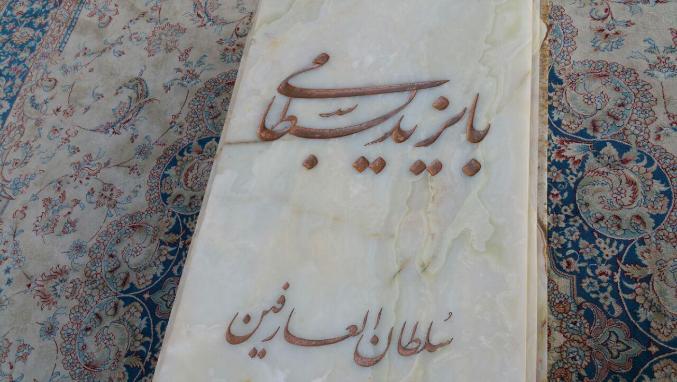 بایزید بسطامی
سُلطان العارفین